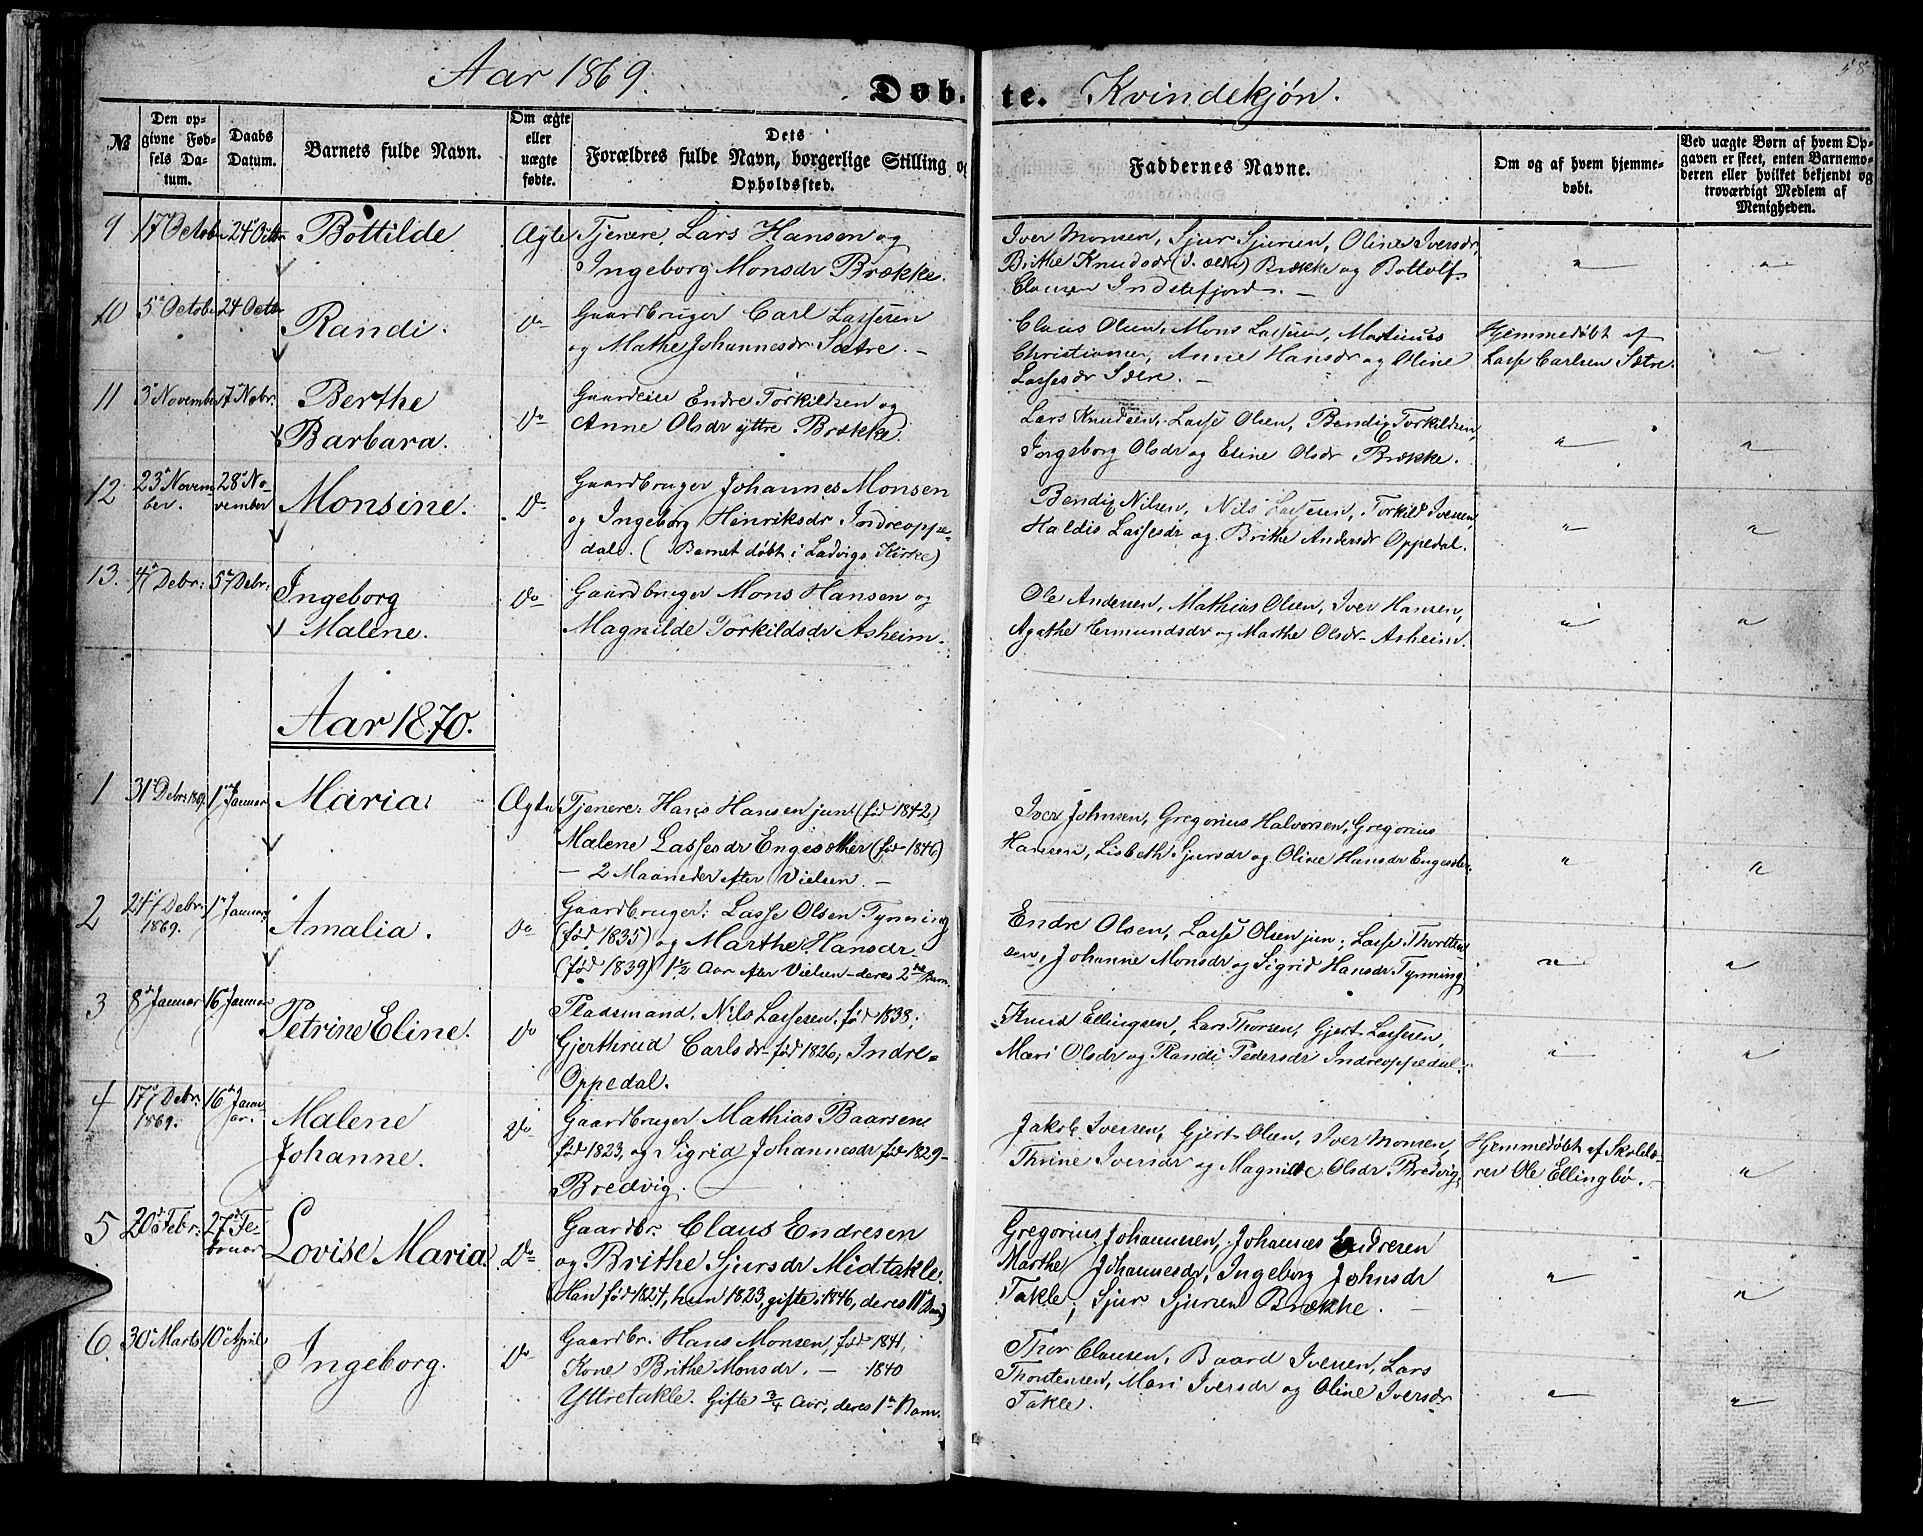 58
Aar 1869.
Døb- te. Kvindekjøn.
№
Den op-
givne Fød-
sels Da-
tum.
Daabs
Datum.
Barnets fulde Navn.
Om ægte
eller
uægte
fødte.
Dets
Forældres fulde Navn, borgerlige Stilling og
Opholdssted.
Faddernes Navne.
Om og af hvem hjemme-
døbt.
Ved uægte Børn af hvem Op-
gaven er skeet, enten Barnemo-
deren eller hvilket bekjendt og
troværdigt Medlem af
Menigheden.
9 17 Octob 24 Octbr Bottilde Ægte Tjenere Lars Hansen og
Ingeborg Monsdr Brække.
Iver Monsen, Sjur Sjursen, Oline Iversdr,
Brithe Knudsdr Brække og Bottolf
Clausen Indrefjord. —
10 5 October 24 Octbr Randi. Do Gaardbruger Carl Lassesen
og Mathe Johannesdr Sætre. —
Claus Olsen, Mons Lassesen, Martinus
Christianser, Anne Hansdr og Oline
Lassesdr Sætre. —
Hjemmedøbt af
Lasse Carlsen Sætre.
11 3 November 7 Nobr. Berthe
Barbara. Do Gaardeier Endre Torkildsen og
Anne Olsdr yttre Brække.
Lars Knudsen, Lasse Olsen, Bendix Torkildsen,
Ingeborg Olsdr og Eline Olsdr Brække.
12 23 Novem-
ber. 28 No-
vember Monsine. Do Gaardbruger Johannes Monsen
og Ingeborg Henriksdr Indreoppe-
dal. (Barnet døbt i Ladvigs Kirke)
Bendix Nilsen, Nils Lassesen, Torkild Iversen,
Haldis Lassesdr og Brithe Andersdr Oppedal.
13. 4 Debr: 5 Debr: Ingeborg
Malene. Do Gaardbruger Mons Hansen og
Magnilde Torkildsdr Asheim.
Ole Andersen, Mathias Olsen, Iver Hansen,
Agathe Ermundsdr og Marthe Olsdr Asheim.
Aar 1870.
1 31 Debr: 1869. 1 Januar Maria. Ægte Tjenere: Hans Hansen jun (fød 1842)
Malene Lassesdr Engesæther (fød 1846)
— 2 Maaneder efter Vielsen. —
Iver Johnsen, Gregorius Halvorsen, Gregorius
Hansen, Lisbeth Sjursdr og Oline Hansdr Engesæter
2 24 Debr:
1869. 1 Januar Amalia. Do Gaardbruger: Lasse Olsen Tynning
(fød 1835) og Marthe Hansdr
(fød 1839) 1½ Aar efter Vielsen - deres 2det Barn.
Endre Olsen, Lasse Olsen jun; Lasse Thorsten-
sen, Johanne Monsdr og Sigrid Hansdr Tynning
3 8 Januar 16 Januar Petrine Eline. Do Pladsmand, Nils Lassesen, fød 1838;
Gjerthrud Carlsdr fød 1826; Indre-
Oppedal.
Knud Ellingsen, Lars Thorsen, Gjert Lassesen,
Mari Olsdr og Randi Pedersdr Indreoppedal.
4 17 Debr:
1869. 16 Janu-
ar. Malene
Johanne. Do Gaardbruger Mathias Baarsen
fød 1823, og Sigrid Johannesdr fød 1829 -
Bredvig.
Jakob Iversen, Gjert Olsen, Iver Monsen,
Thrine Iversdr og Magnilde Olsdr Bredvig
Hjemmedøbt af Skolelæ-
rer Ole Ellingbø. —
5 20 Febr: 27 Fe-
bruar Lovise Maria Do Gaardbr. Claus Endresen
og Brithe Sjursdr Midtakle.
(Han fød 1824, hun 1823, gifte 1846, deres 11 Barn)
Gregorius Johannesen, Johannes Endresen
Marthe Johannesdr, Ingeborg Johnsdr
Takle; Sjur Sjursen Brække. —
6. 30 Marts 10 April Ingeborg. Do Gaardbr. Hans Monsen, fød 1841,
Kone Brithe Monsdr. — 1840
Yttretakle. Gifte ¾ Aar, deres 1 Barn.
Thor Clausen, Baard Iversen, Lars
Thorstensen, Mari Iversdr og Oline Iversdr
Takle.